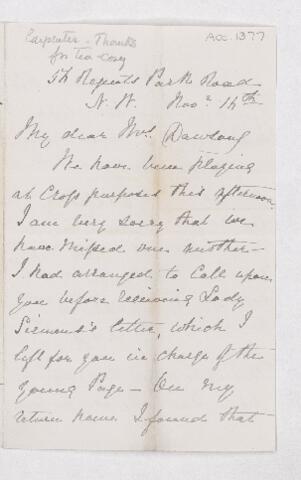 Carpenter - Thanks
for Tea-cosy
Acc. 1377
54 Regents Park Road
N.W. Nov. 14th
My dear Mrs. Dawson,
We have been playing
at Cross purposes this afternoon.
I am very sorry that we
have missed one another -
I had arranged to call upon
you before receiving Lady
Simons's letter, which I
left for you in charge of the
young Page - On my
return home I found that